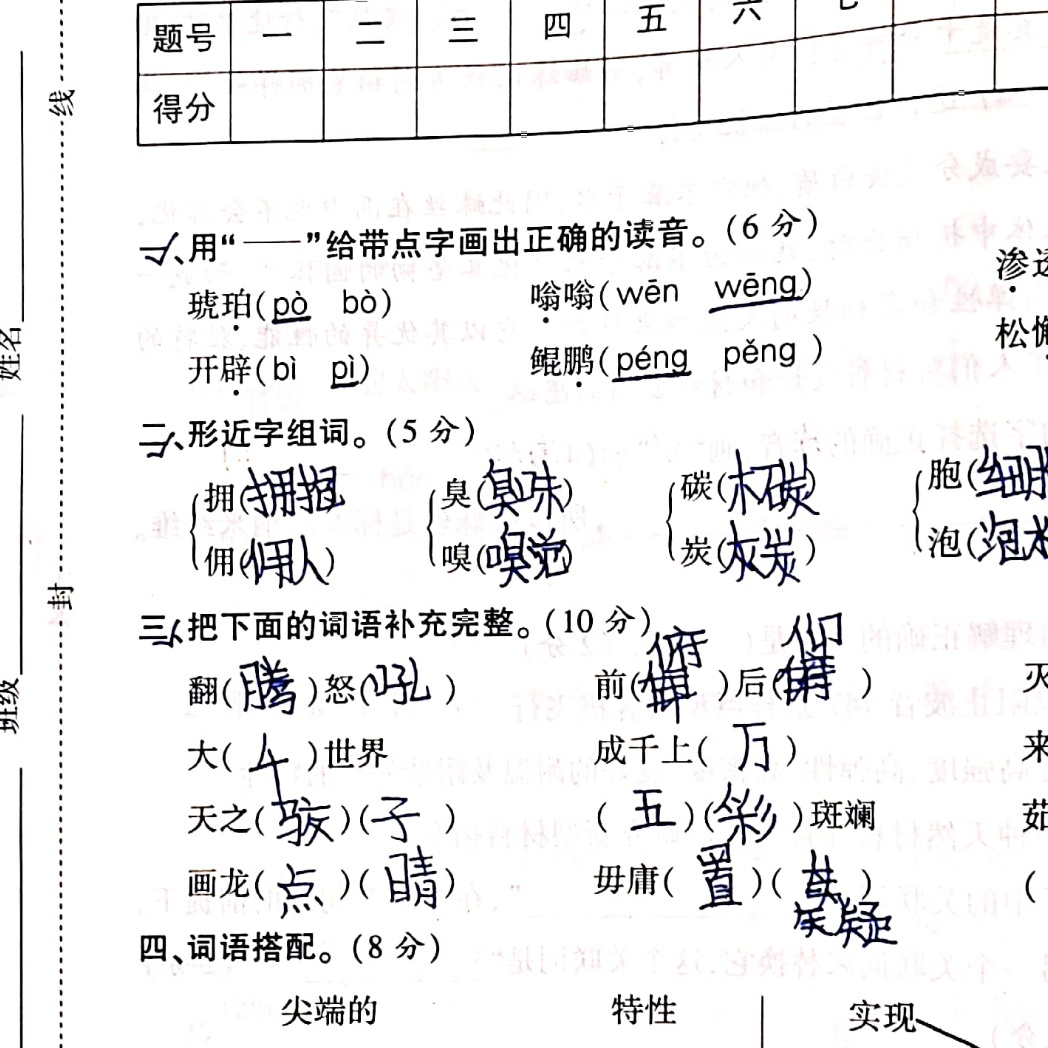 题号 一 二 三 四 五 六 七
得分
线
封
姓名
班级
一、用“——”给带点字画出正确的读音。(6分)
琥珀(pò bò) 嗡嗡(wēn wēng) 渗透
开辟(bì pì) 鲲鹏(péng pěng) 松懈
二、形近字组词。(5分)
拥(拥抱) 臭(臭味) 碳(木碳) 胞(细胞
佣(佣人) 嗅(嗅觉) 炭(灰炭) 泡(泡水
三、把下面的词语补充完整。(10分)
翻(腾)怒(吼) 前(俯)后(仰) 灭
大(千)世界 成千上(万) 来
天之(骄)(子) (五)(彩)斑斓 茹
画龙(点)(睛) 毋庸(置)(疑) (
四、词语搭配。(8分)
尖端的 特性 实现